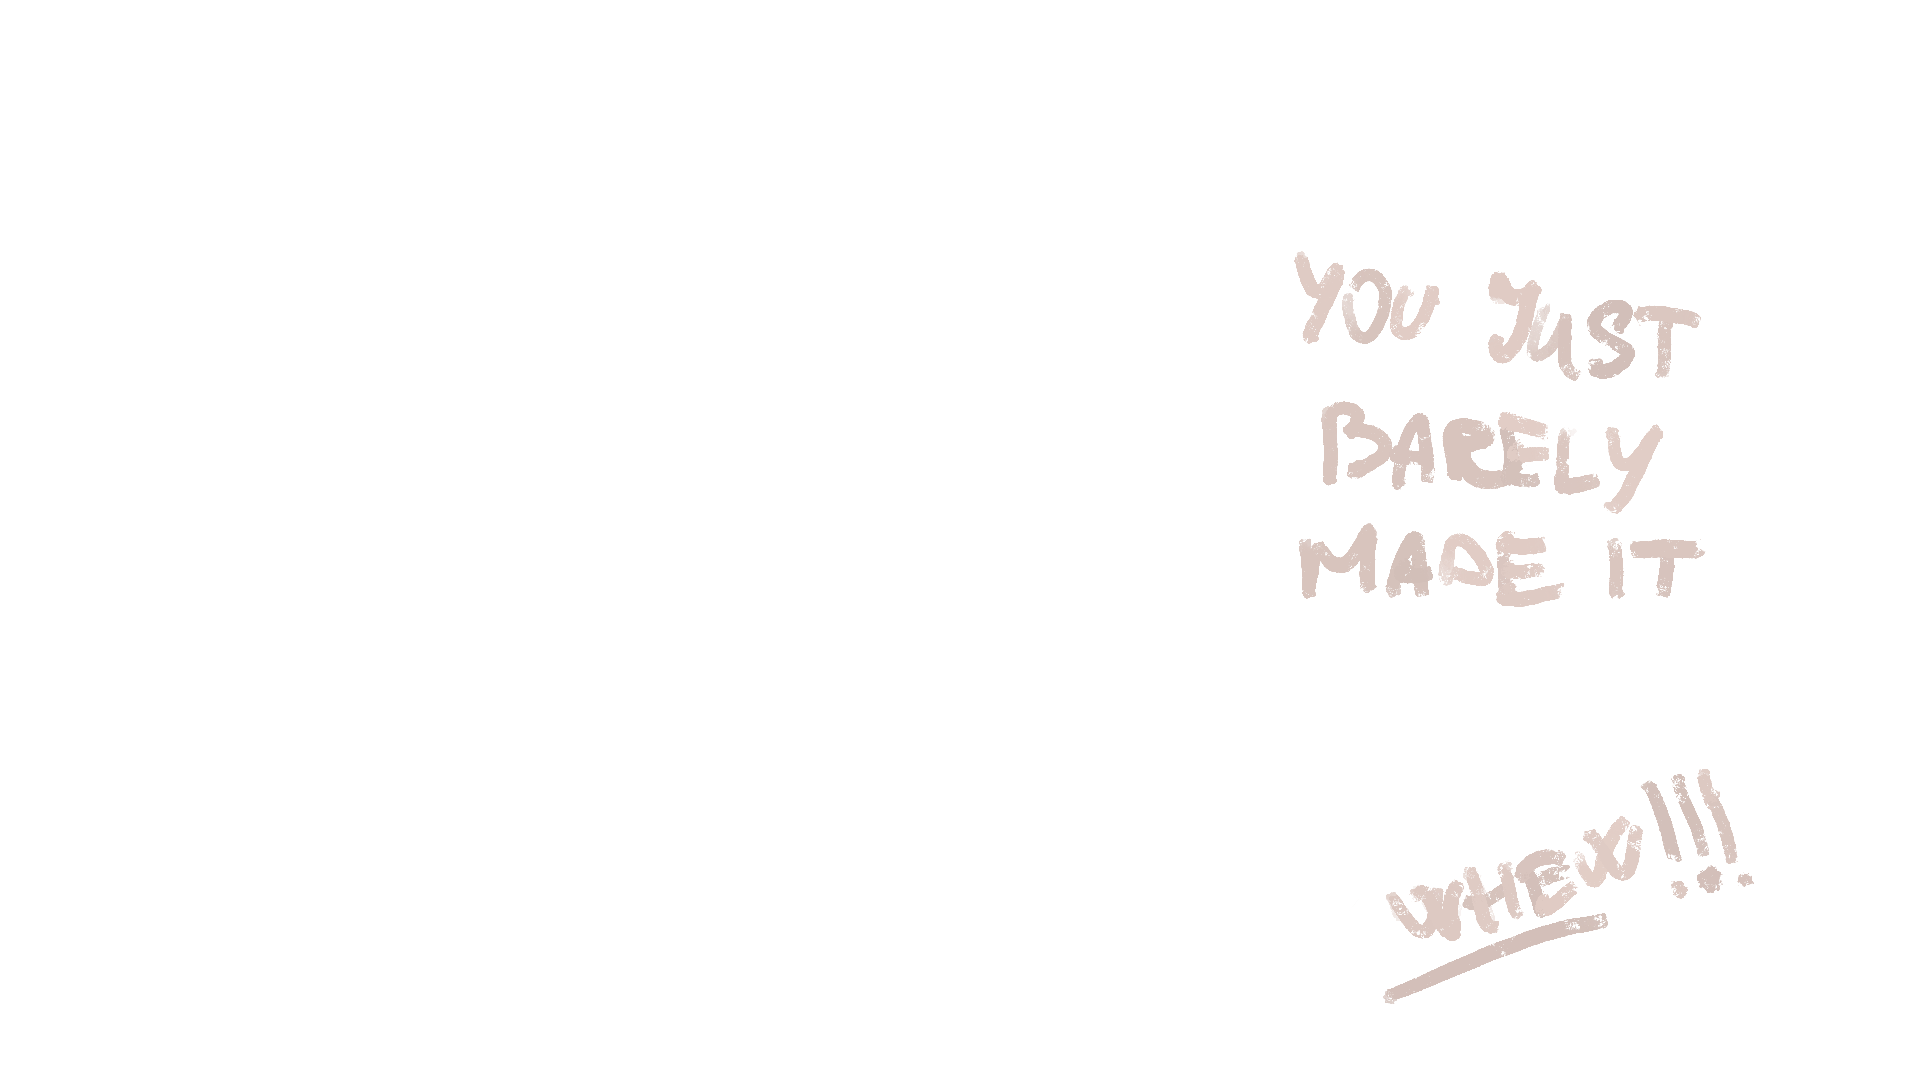 YOU JUST
BARELY
MADE IT
WHEW!!!